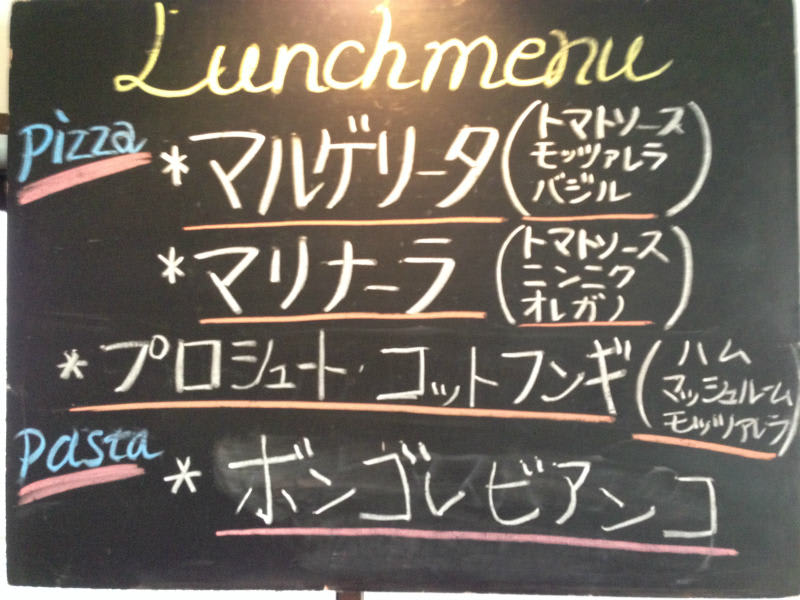 Lunch menu
Pizza
*マルゲリータ(トマトソース
モッツァレラ
バジル)
*マリナーラ(トマトソース
ニンニク
オレガノ)
*プロシュート・コットフンギ(ハム
マッシュルーム
モッツァレラ)
Pasta
*ボンゴレビアンコ